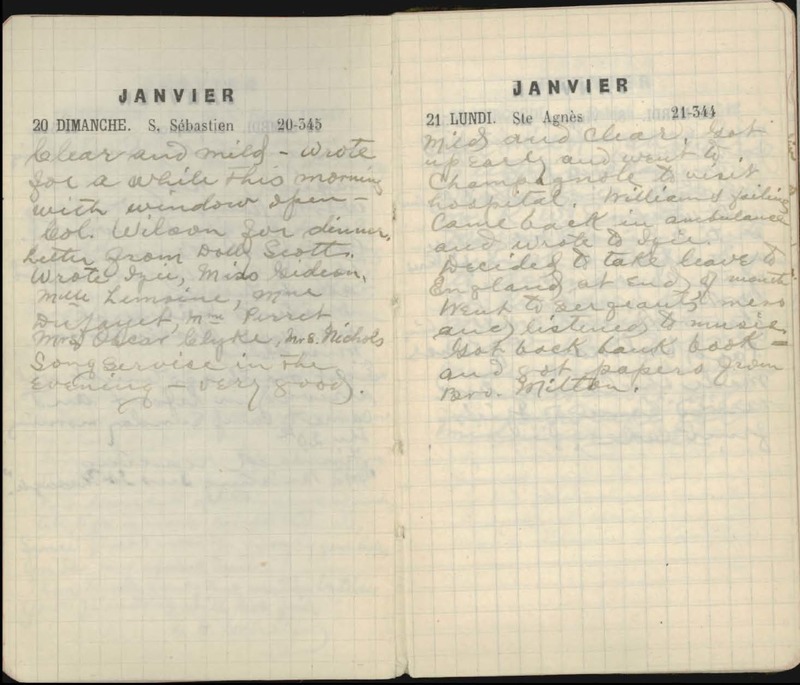 JANVIER
20 DIMANCHE. S. Sébastien 20-345
Clear and mild - wrote
for a while this morning
with window open -
Col. Wilson for dinner.
Letter from Dolly Scott.
Wrote Izie, Miss Gideon,
Mlle Lemoine, Mme
Dufayet, Mme Perret
Mrs Oscar Clyke, Mrs. Nichols
Song service in the
evening - very good.
JANVIER
21 LUNDI. Ste Agnès 21-344
Mild and clear. Got
up early and went to
Champagnole to visit
hospital. William failing
Came back in ambulance
and wrote to Izie.
Decided to take leave to
England at end of month
Went to Sergeants' mess
and listened to music.
Got back bank book -
and got papers from
Bro. Mitton.